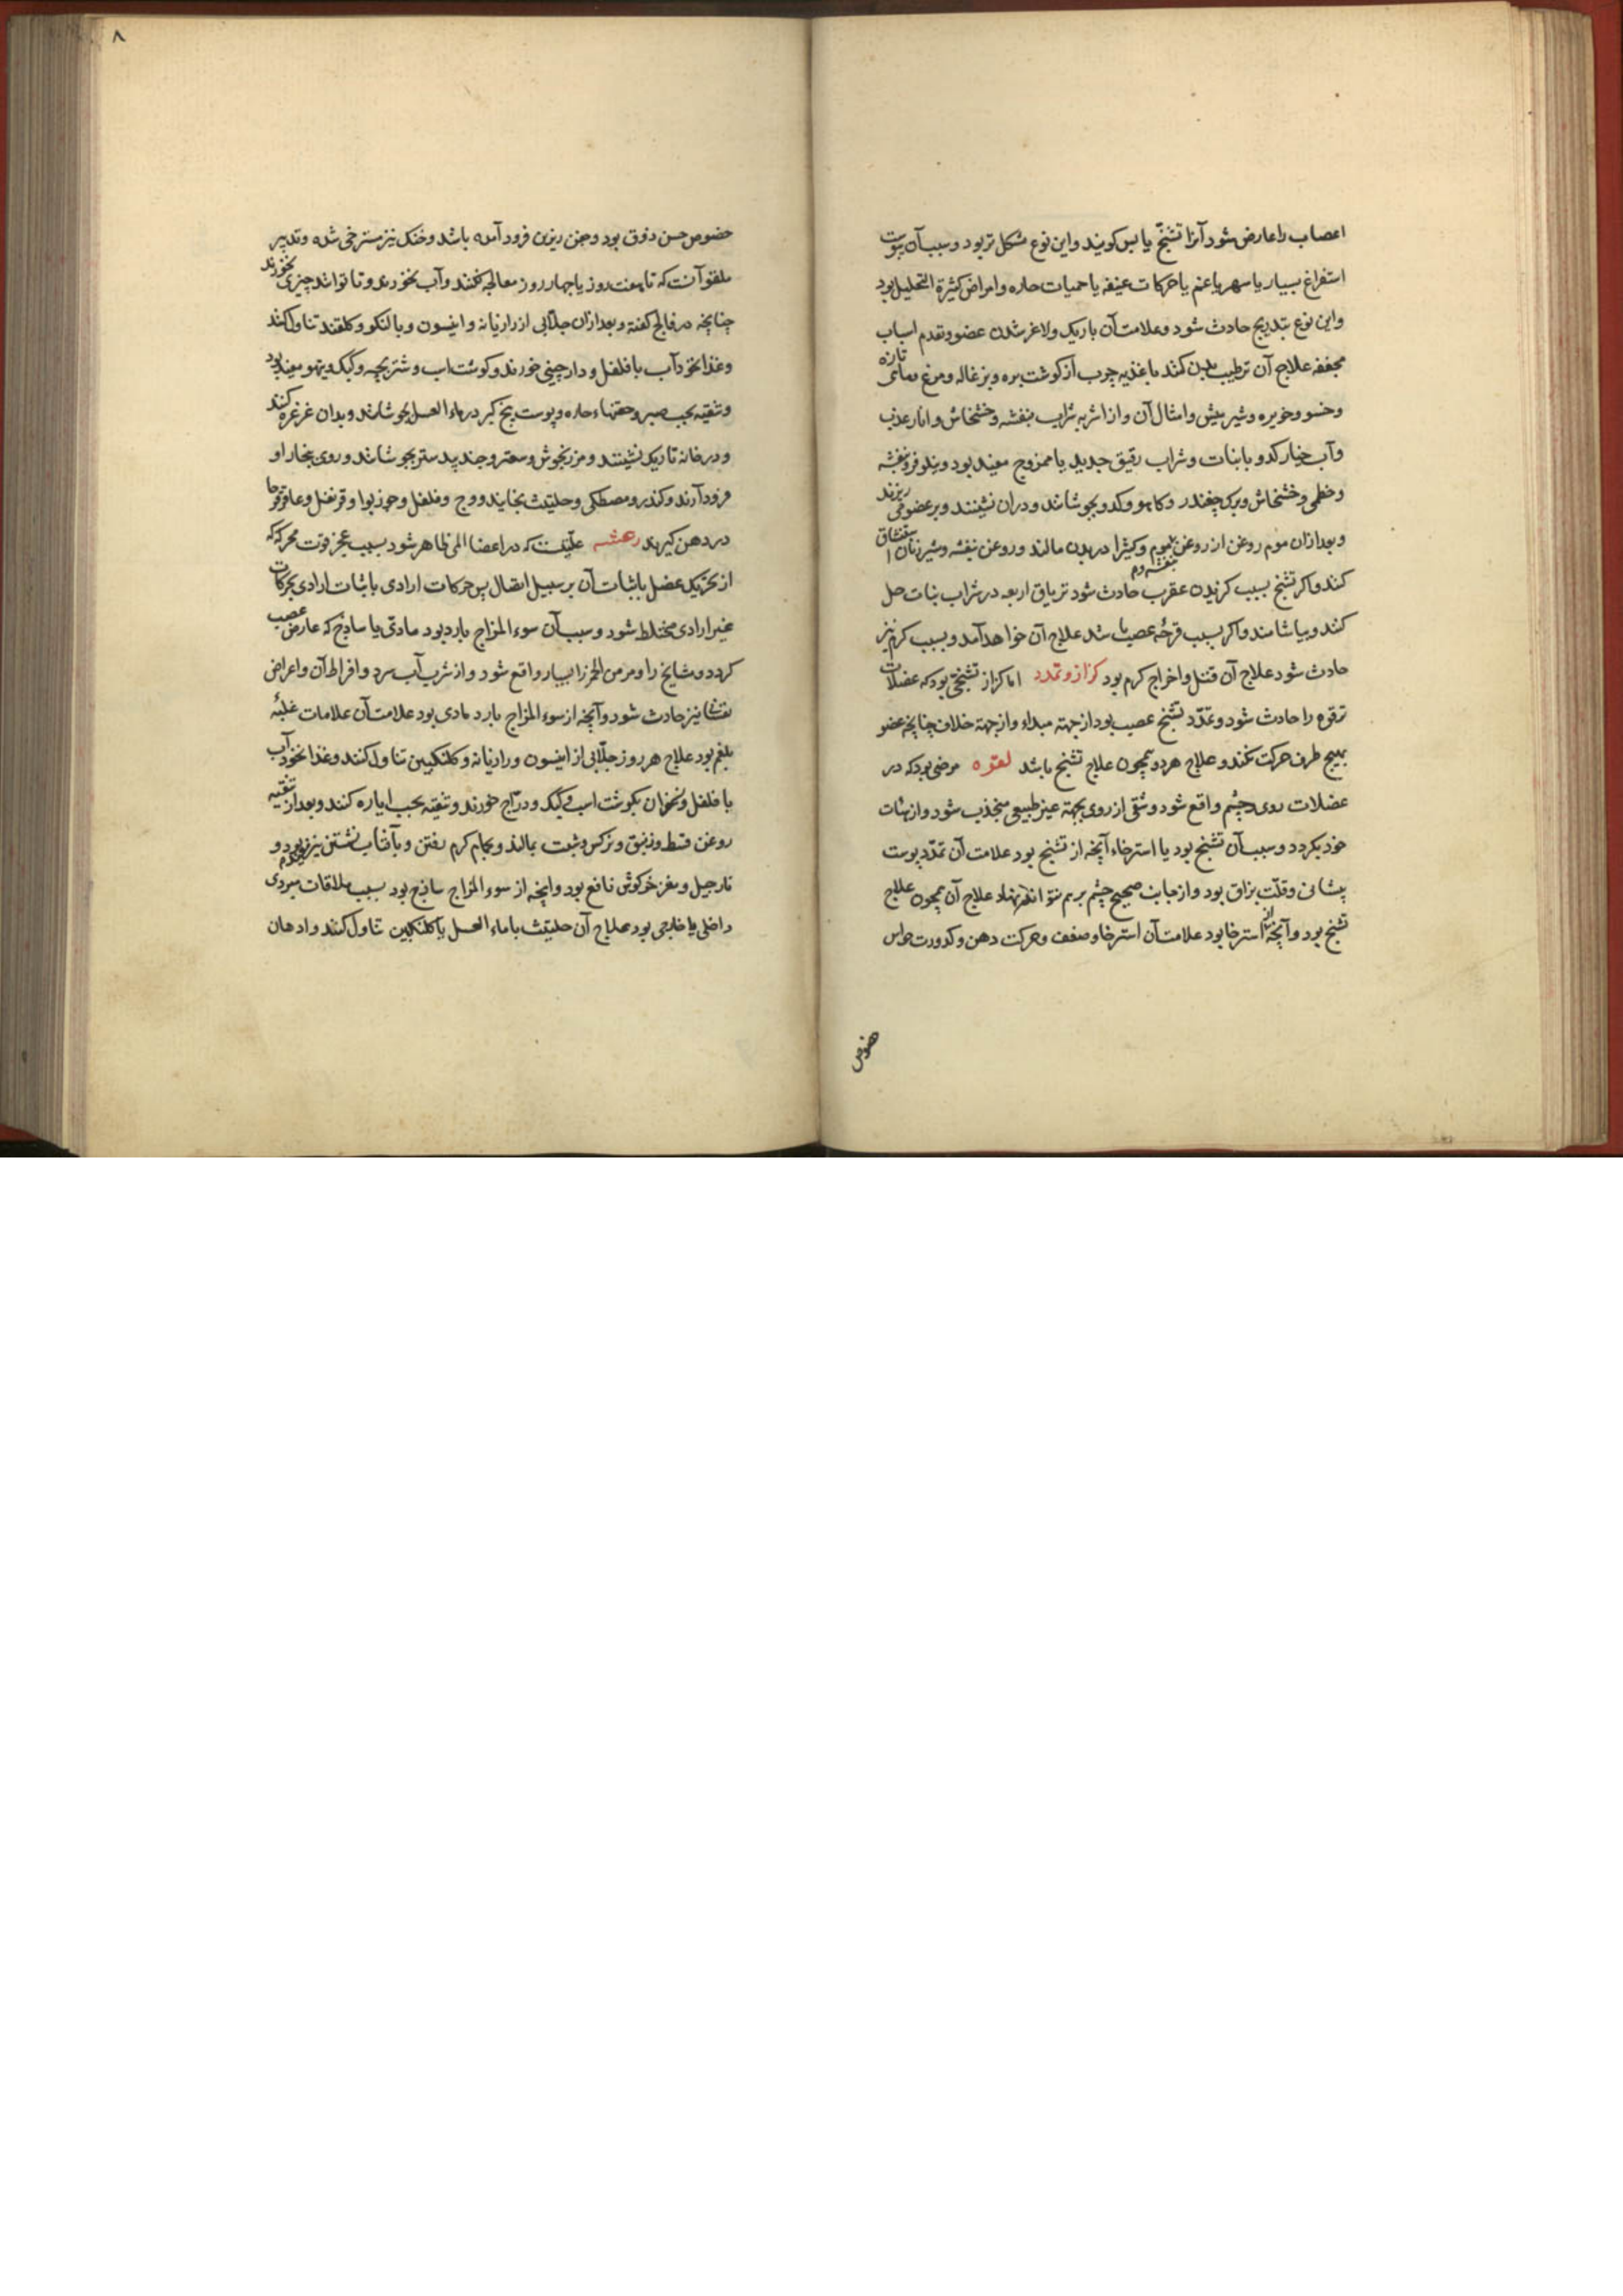 اعصاب را عارض شود آنرا تشنّج یابس کویند و این نوع مشکل تر بود و سبب آن یبوست
استفراغ بسیار یا سهر یا غم یا حرکات عنیفه یا حمیات حاره و امراض کثیرة التحلیل بود
و این نوع بتدریج حادث شود و علامت آن باریک و لاغر شدن عضو و تقدم اسباب
مجففه علاج آن ترطیب بدن کنند باغذیه چرب از کوشت بره و بزغاله و مرغ و ماهی تازه
و حسو و خویره و شیر میش و امثال آن و از اشربه شراب بنفشه و خشخاش و انار عذب
و آب خیار کدو بابنات و شراب رقیق جدید یا ممزوج مفید بود و نیلوفر و بنفشه
و خطمی و خشخاش و برک چغندر و کاهو و کدو بجوشانند و دران نشینند و بر عضو می ریزند
و بعد ازان موم روغن از روغن بنفشه و موم و کثیرا در بدن مالند و روغن بنفشه و شیر زنان استنشاق
کنند و اکر تشنج بسبب کزیدن عقرب حادث شود تریاق اربعه در شراب بنات حل
کنند و بیاشامند و اکر بسبب قرحهٔ عصب باشد علاج آن خواهد آمد و بسبب کرم نیز
حادث شود علاج آن قتل و اخراج کرم بود کزاز و تمدد اما کزاز تشنجی بود که عضلات
ترقوه را حادث شود و تمدّد تشنج عصب بود از جهته مبداء و از جهته خلاف چنانچه عضو
بهیچ طرف حرکت نکند و علاج هر دو همچون علاج تشنج باشد لقوه مرضی بود که در
عضلات روی و چشم واقع شود و شقی از روی بجهته غیر طبیعی منجذب شود و از هیات
خود بکردد و سبب آن تشنج بود یا استرخاء آنچه از تشنج بود علامت آن تمدّد پوست
پیشانی و قلّت بزاق بود و از جانب صحیح چشم برهم نتواند نهاد علاج آن همچون علاج
تشنج بود و آنچه از استرخا بود علامت آن استرخا و ضعف و حرکت دهن و کدورت حواس
خصوص
۸
خصوص حس ذوق بود و جفن زیرین فرود آمده باشد و حنک نیز مسترخی شده و تدبیر
ملقو آنست که تا هفت روز یا چهار روز معالجه نکنند و آب نخورند و تا توانند چیزی نخورند
چنانچه در فالج کفته و بعد ازان جلابی از رازیانه و انیسون و بالنکو و کلقند تناول کنند
و غذا نخودآب با فلفل و دارچینی خورند و کوشت اسب و شتربچه و کبک و تیهو مفید بود
و تنقیه بحب صبر و حقنهاء حاره و پوست بیخ کبر در ماء العسل بجوشانند و بدان غرغره کنند
و در خانه تاریک نشینند و مرزنجوش و سعتر و جندبیدستر بجوشانند و روی ببخار او
فرود آرند و کندر و مصطکی و حلتیت بخایند و وج و فلفل و جوزبوا و قرنفل و عاقرقرحا
در دهن کیرند رعشه علّتیست که در اعضا المی ظاهر شود بسبب عجز قوت محرکه که
از تحریک عضل یا ثبات آن بر سبیل اتصال پس حرکات ارادی یا ثبات ارادی بحرکات
غیر ارادی مختلط شود و سبب آن سوء المزاج بارد بود مادّی یا ساذج که عارض عصب
کردد و مشایخ را و مدمن الخمر را بسیار واقع شود و از شرب آب سرد و افراط آن و اعراض
نفسانی نیز حادث شود و آنچه از سوء المزاج بارد مادی بود علامت آن علامات غلبهٔ
بلغم بود علاج هر روز جلّابی از انیسون و رازیانه و کلنکبین تناول کنند و غذا نخودآب
با فلفل و نخوران بکوشت اسب و کبک و درّاج خورند و تنقیه بحب ایاره کنند و بعد از تنقیه
روغن قسط و زنبق و نرکس و شبت بمالند و بحمام کرم رفتن و بآفتاب نشستن نیز بود و
نارجیل و مغز خرکوش نافع بود و آنچه از سوء المزاج ساذج بود بسبب ملاقات مبردی
داخلی یا خارجی بود علاج آن حلتیت با ماء العسل یا کلنکبین تناول کنند و ادهان